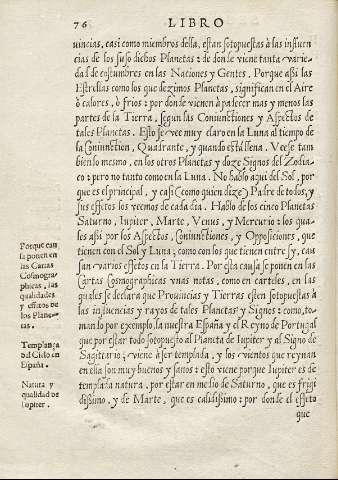 76 LIBRO
uincias, casi como miembros della, estan sotopuestas à las influen
cias de los suso dichos Planetas: de donde viene tanta varie-
dad de costumbres en las Naciones y Gentes. Porque assi las
Estrellas como los que dezimos Planetas, significan en el Aire
ò calores, ò frios: por donde vienen à padecer mas y menos las
partes de la Tierra, segun las Coniunctiones y Aspectos de
tales Planetas. Esto se vee muy claro en la Luna al tiempo de
la Coniunction, Quadrante, y quando està llena. Veese tam
bien lo mesmo, en los otros Planetas y doze Signos del Zodia-
co: pero no tanto como en la Luna. No hablo aqui del Sol, por
que es el principal, y casi (como quien dize) Padre de todos, y
sus effetos los vemos de cada dia. Hablo de los cinco Planetas
Saturno, Iupiter, Marte, Venus, y Mercurio: los qua-
les assi por los Aspectos, Coniunctiones, y Opposiciones, que
tienen con el Sol y Luna; como con los que tienen entre sy, cau
san varios effetos en la Tierra. Por esta causa se ponen en las
Cartas Cosmographicas unas notas, como en carteles, en las
quales se declara que Provincias y Tierras esten sotopuestas à
las influencias y rayos de tales Planetas y Signos: como, to-
manlo por exemplo, la nuestra España y el Reyno de Portugal
que por estar todo sotopuesto al Planeta de Iupiter y al Signo de
Sagitario, viene à ser templada, y los vientos que reynan
en ella son muy buenos y sanos: esto viene porque Iupiter es de
templada natura, por estar en medio de Saturno, que es frigi
dissimo, y de Marte, que es calidissimo: por donde el effeto
que
Porque cau
sa ponen en
las Cartas
Cosmogra-
phicas, las
qualidades
y effetos de
los Plane-
tas.
Templança
del Cielo en
España.
Natura y
qualidad de
Iupiter.